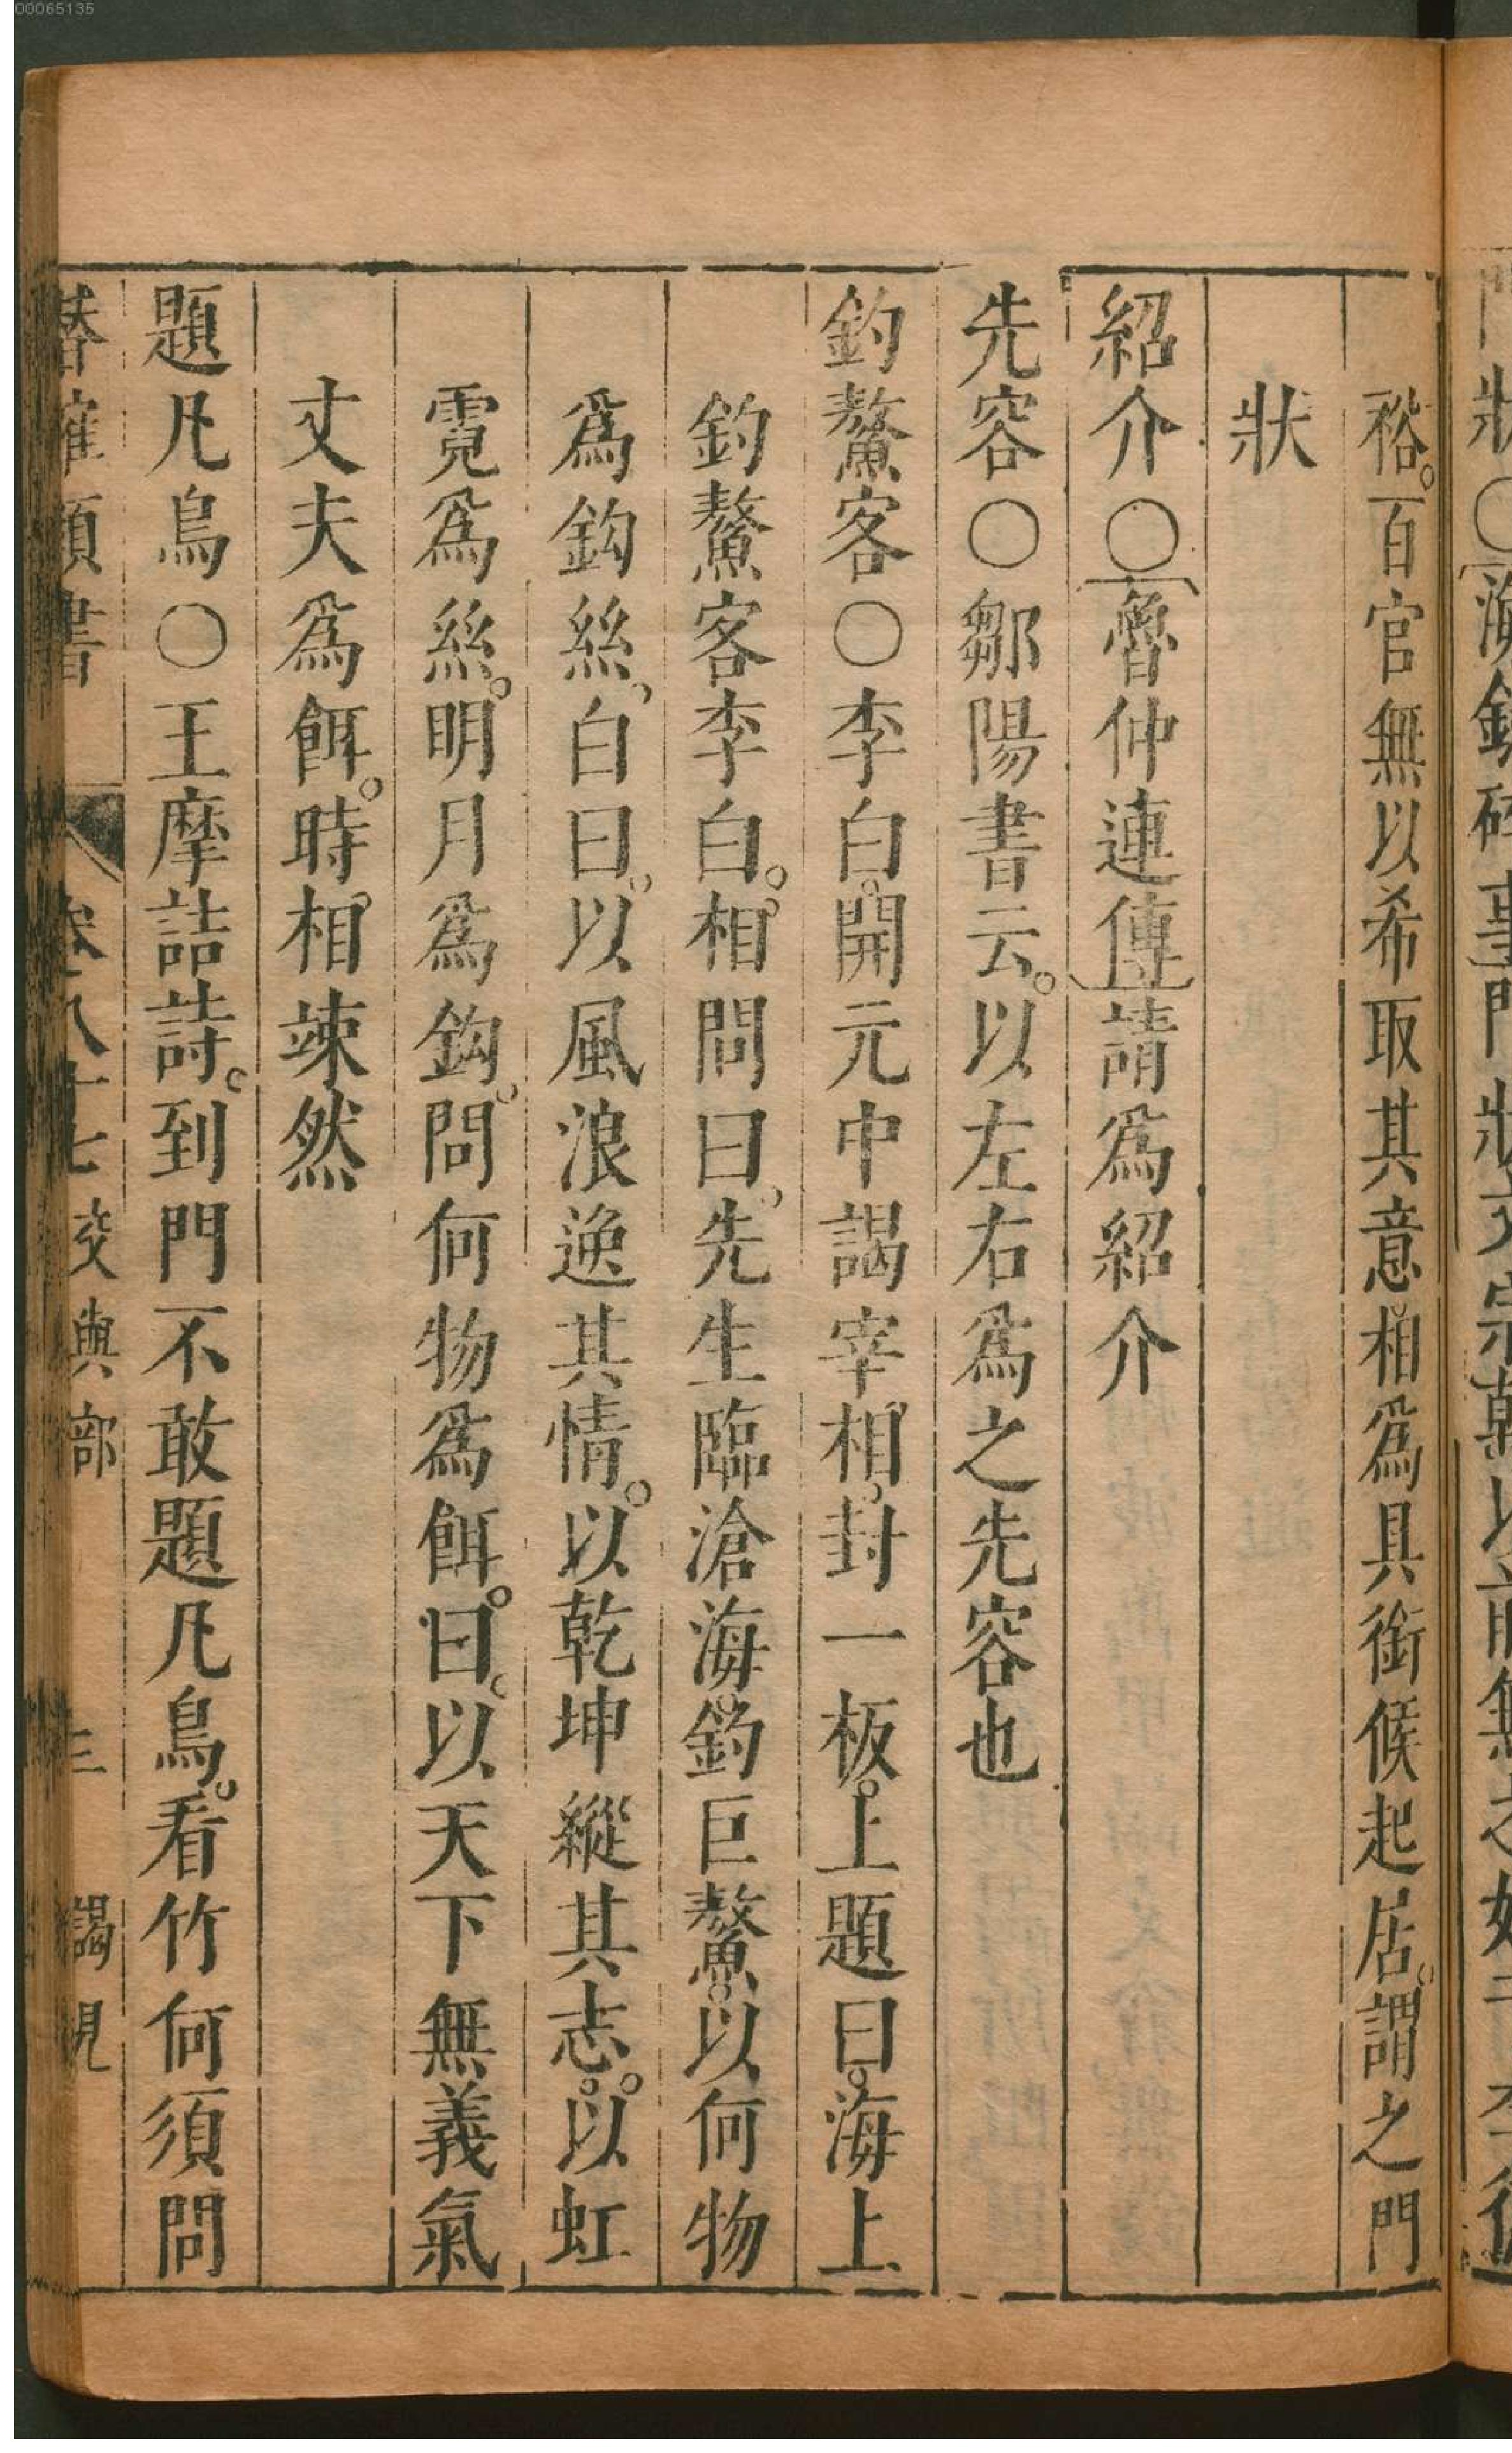 00065135
裕。百官無以希取其意。相爲具銜候起居。謂之門
狀
紹介〇魯仲連傳請爲紹介
先容〇鄒陽書云。以左右爲之先容也
釣鰲客〇李白。開元中謁宰相。封一板。上題曰。海上
釣鰲客李白。相問曰。先生臨滄海。釣巨鰲。以何物
爲鈎絲。白曰。以風浪逸其情。以乾坤縱其志。以虹
霓爲絲。明月爲鈎。問何物爲餌。曰。以天下無義氣
丈夫爲餌。時相竦然
題凡鳥〇王摩詰詩。到門不敢題凡鳥。看竹何須問
類書 卷八十七交與部 三 謁見